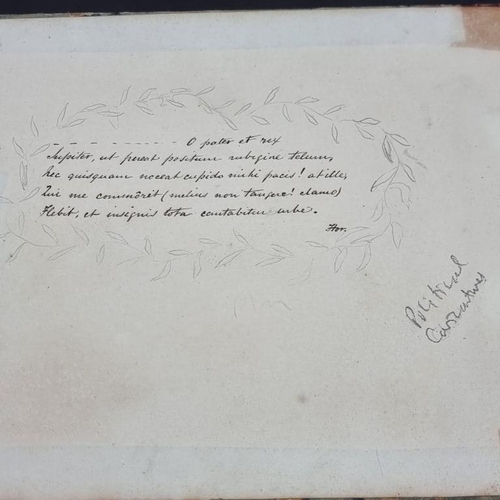 - - - - - - - - - - - - O pater et rex
Jupiter, ut pereat positum rubigine telum,
Nec quisquam noceat cupido mihi pacis! at ille,
Qui me commôrit (melius non tangere! clamo)
Flebit, et insignis tota cantabitur urbe.
Hor.
Political
Caricatures